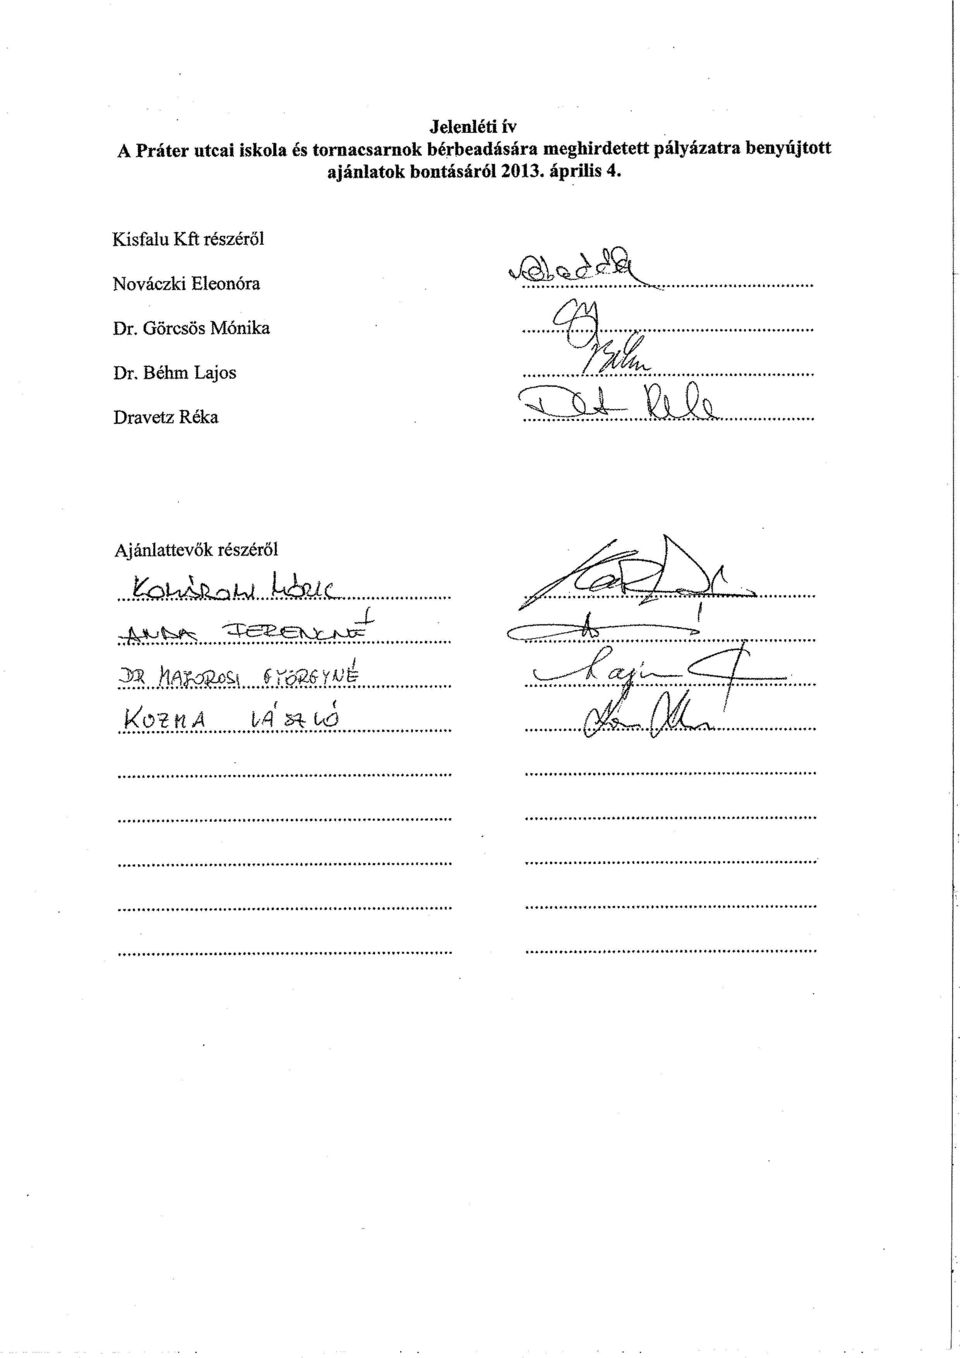 Jelenléti ív
A Práter utcai iskola és tornacsarnok bérbeadására meghirdetett pályázatra benyújtott
ajánlatok bontásáról 2013. április 4.
Kisfalu Kft részéről
Nováczki Eleonóra
Dr. Görcsös Mónika
Dr. Béhm Lajos
Béhm
Dravetz Réka
Ajánlattevők részéről
ANDA FERENCNÉ
DR MAJOROSI GYÖRGYNÉ
KOZMA LÁSZLÓ